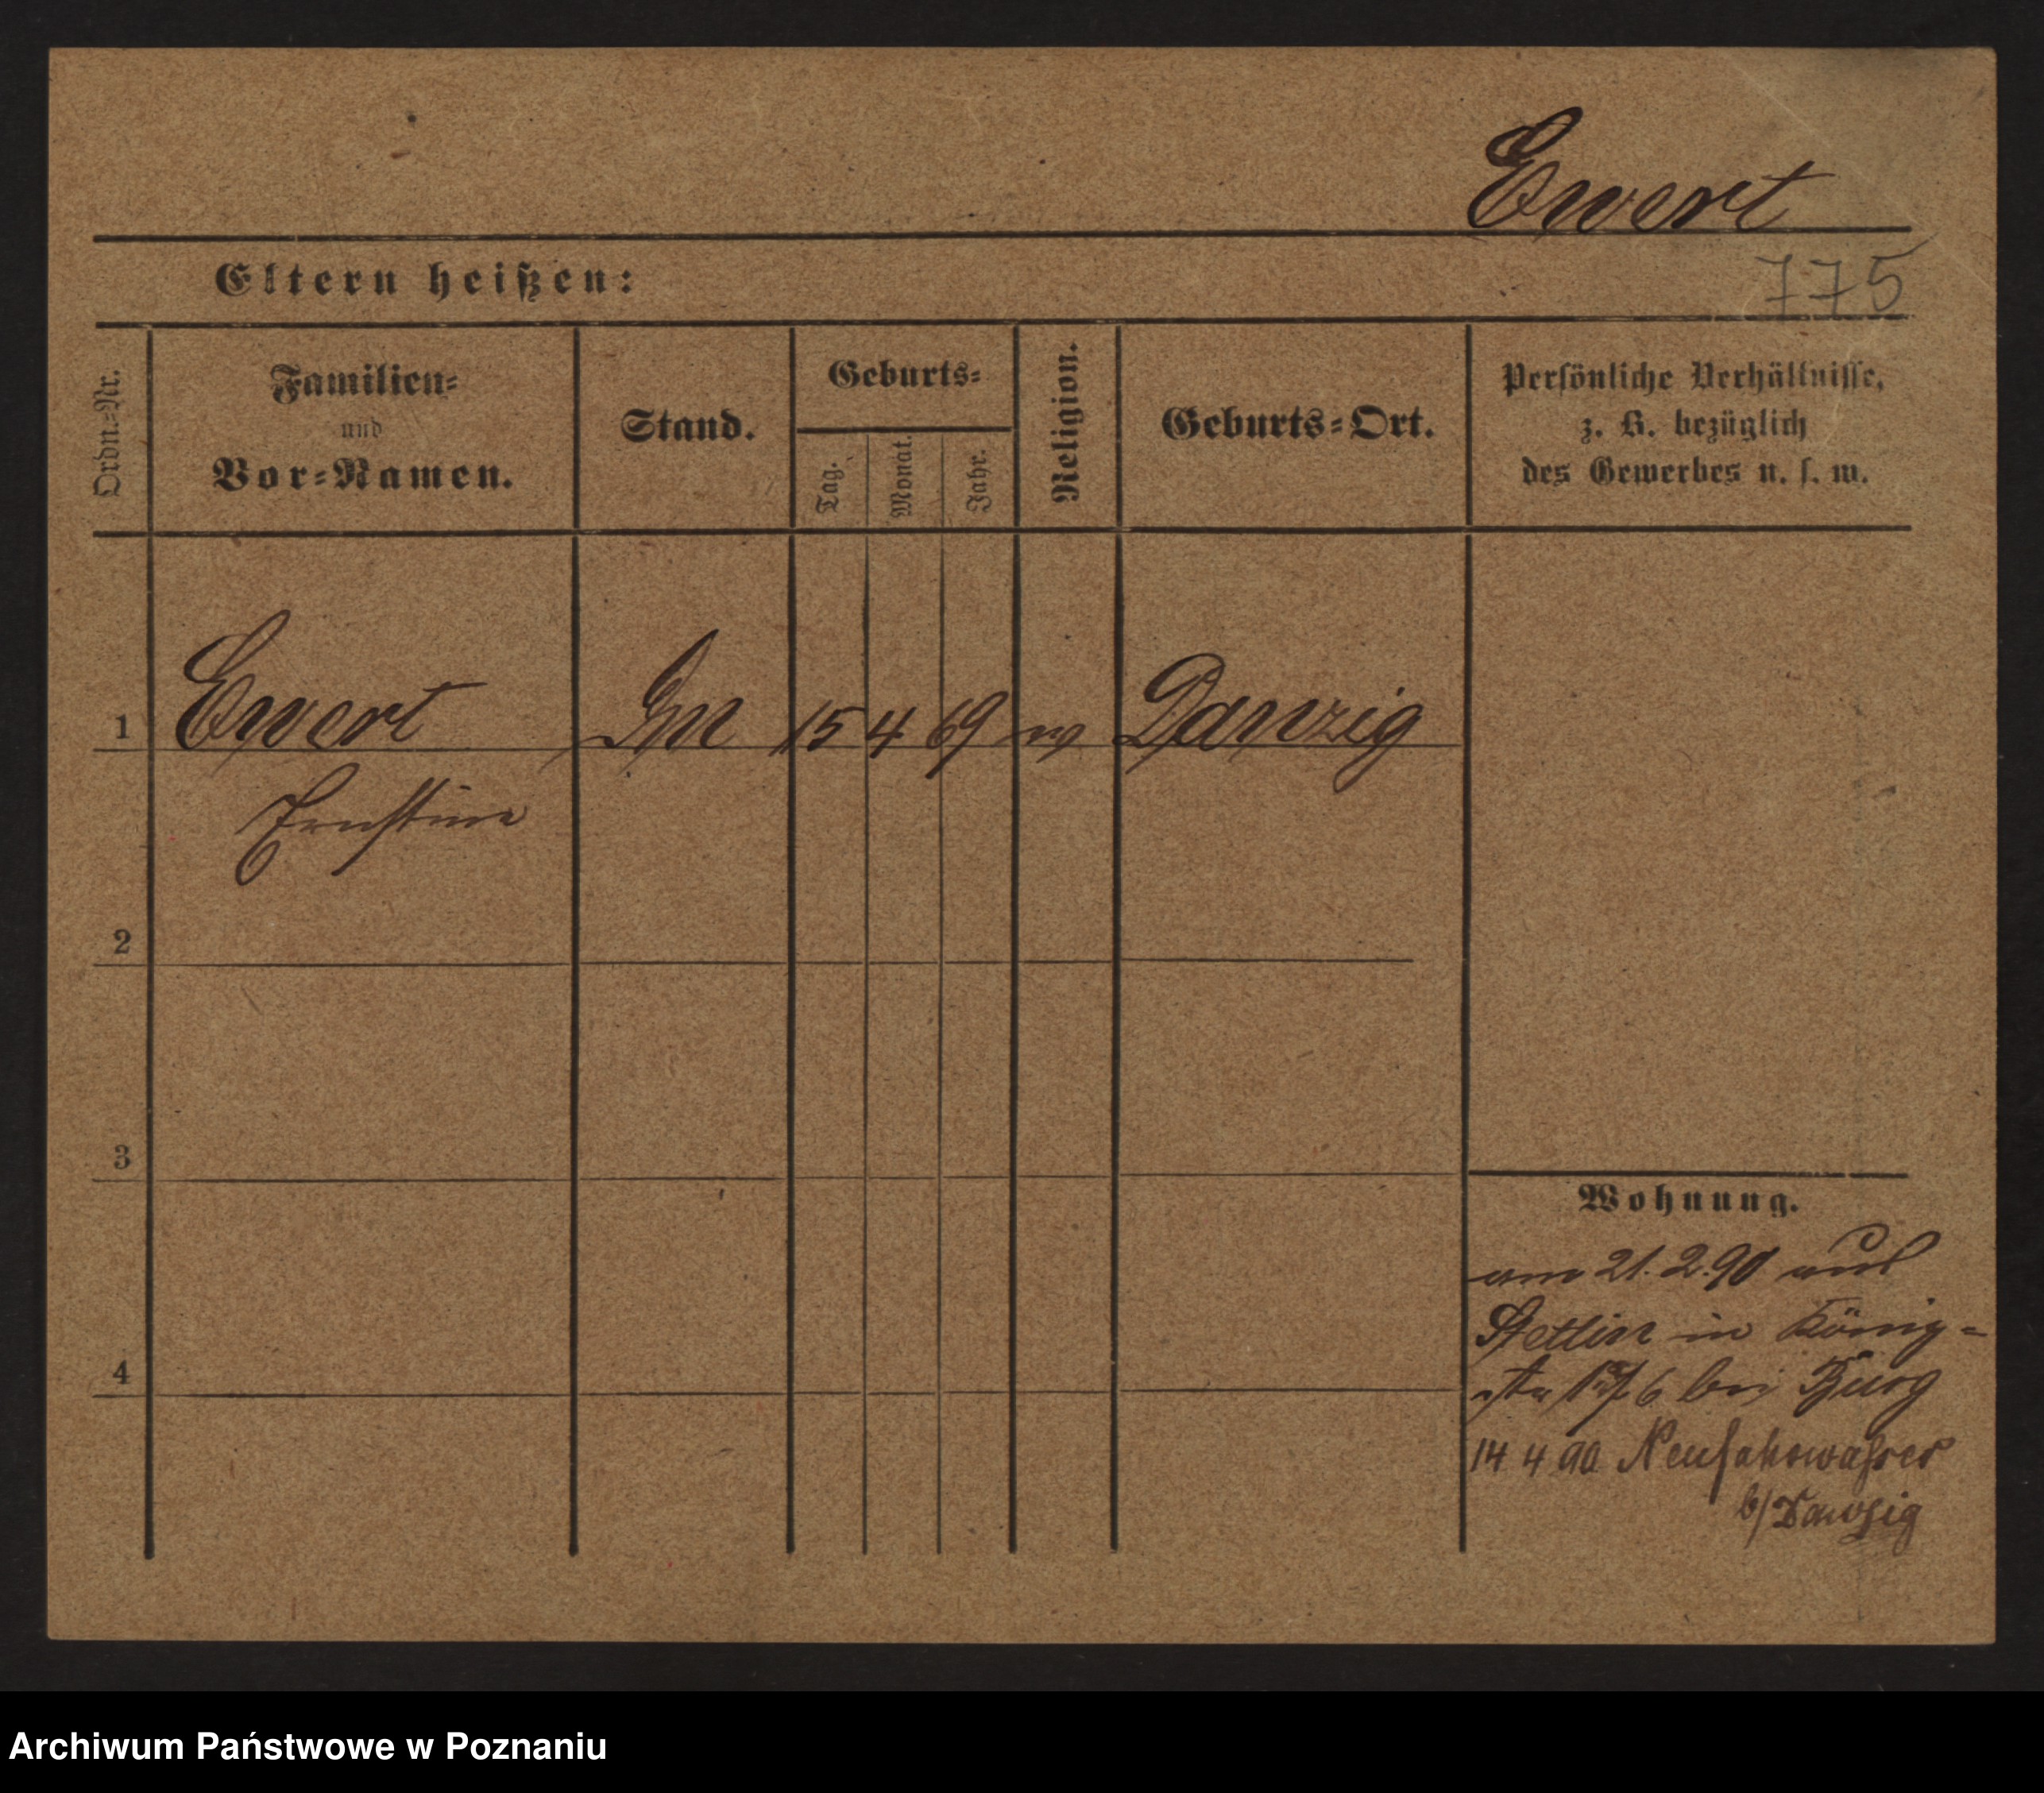 Ewert
Eltern heißen:
775
Ordn.-Nr.
Familien-
und
Vor-Namen.
Stand.
Geburts-
Tag.
Monat.
Jahr.
Religion.
Geburts-Ort.
Persönliche Verhältnisse,
z. B. bezüglich
des Gewerbes u. s. w.
1 Ewert 15 4 69 Danzig
Ernstine
2
3
4
Wohnung.
am 21. 2. 90 aus
Stettin in König-
6 bei Burg
14 4 90 Neufahrwasser
b/Danzig
Archiwum Państwowe w Poznaniu